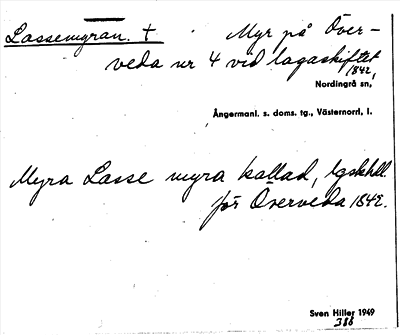 Lassemyran. † Myr på Över-
veda nr 4 vid lagaskiftet
1842,
Nordingrå sn,
Ångermanl. s. doms. tg., Västernorrl, l.
Myra Lasse myra kallad, lgskhdl.
för Överveda 1842.
Sven Hiller 1949
386